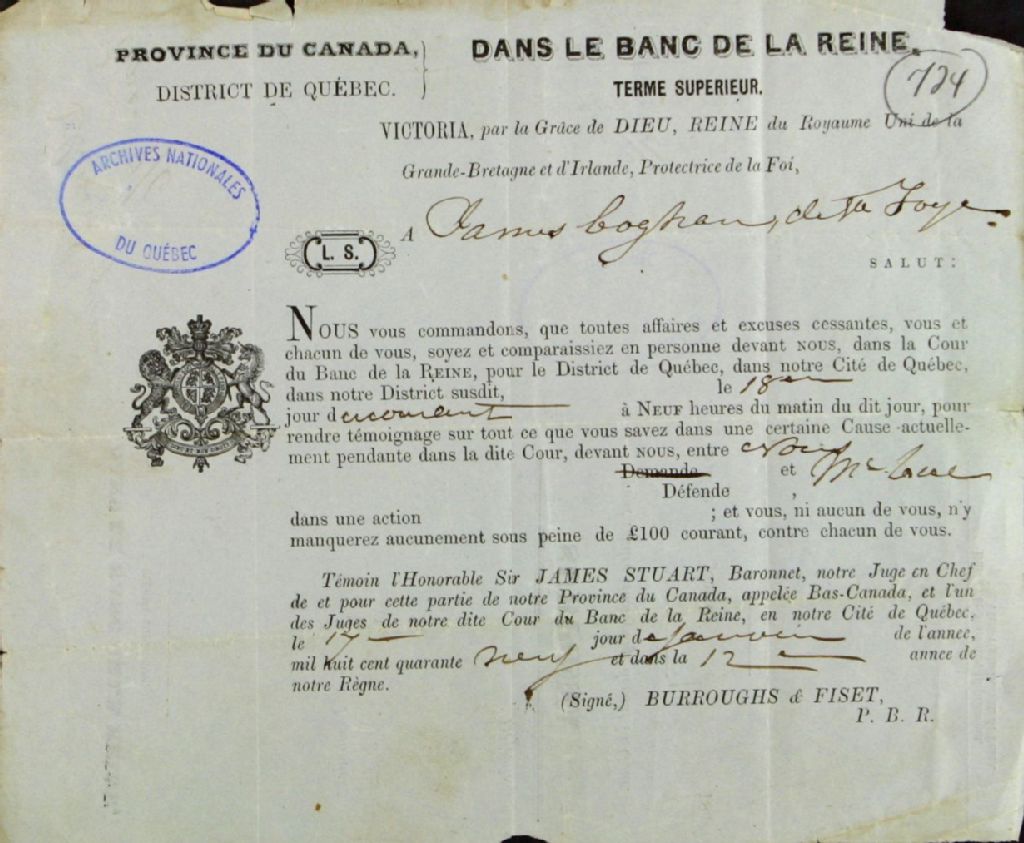 PROVINCE DU CANADA,
DISTRICT DE QUÉBEC.
DANS LE BANC DE LA REINE.
TERME SUPERIEUR.
124
VICTORIA, par la Grâce de DIEU, REINE du Royaume Uni de la
Grande-Bretagne et d'Irlande, Protectrice de la Foi,
ARCHIVES NATIONALES
DU QUÉBEC
L. S.
A James Coghan, de Ste Foye
SALUT:
NOUS vous commandons, que toutes affaires et excuses cessantes, vous et
chacun de vous, soyez et comparaissiez en personne devant NOUS, dans la Cour
du Banc de la REINE, pour le District de Québec, dans notre Cité de Québec,
dans notre District susdit, le 18me
jour du courant à NEUF heures du matin du dit jour, pour
rendre témoignage sur tout ce que vous savez dans une certaine Cause actuelle-
ment pendante dans la dite Cour, devant NOUS, entre Nous
Demande et
Défende ,
dans une action ; et vous, ni aucun de vous, n'y
manquerez aucunement sous peine de £100 courant, contre chacun de vous.
Témoin l'Honorable Sir JAMES STUART, Baronnet, notre Juge en Chef
de et pour cette partie de notre Province du Canada, appelée Bas-Canada, et l'un
des Juges de notre dite Cour du Banc de la Reine, en notre Cité de Québec,
le 17 jour de Janvier de l'annee,
mil huit cent quarante neuf et dans la 12me annee de
notre Règne.
(Signé,) BURROUGHS & FISET,
P. B. R.